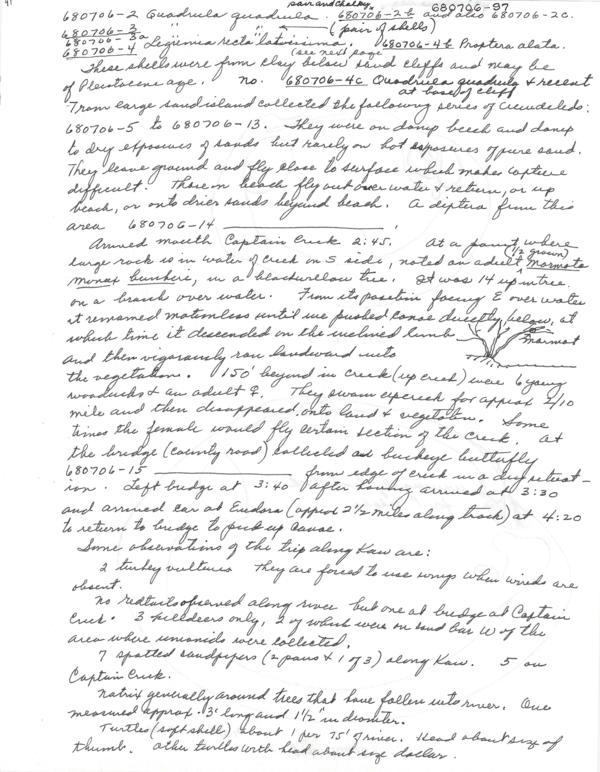 41
pair and chalky. 680706-97
680706-2 Quadrula quadrula. 680706-2b and also 680706-2c.
680706-3 " " (pair of shells)
680706-3a
680706-4 Ligumia recta latissima. 680706-4b Proptera alata.
(see next page
These shells were from clay below sand cliffs and may be
of Pleistocene age. No. 680706-4c Quadrula quadrula & recent
at base of cliff
From large sand island collected the following series of Cicindelids:
680706-5 to 680706-13. They were on damp beach and damp
to dry exposures of sands but rarely on hot exposures of pure sand.
They leave ground and fly close to surface which makes capture
difficult. Those on beach fly out over water & return, or up
beach, or onto drier sands beyond beach. A diptera from this
area 680706-14
Arrived mouth Captain Creek 2:45. At a point where
large rock is in water of creek on S side, noted an adult (1/2 grown) Marmota
monax bunkeri, in a black willow tree. It was 14' up in tree
on a branch over water. From its position facing E over water
it remained motionless until we pushed canoe directly below, at
which time it descended on the inclined limb
marmot
and then vigorously ran landward into
the vegetation. 150' beyond in creek (up creek) were 6 young
woodducks & an adult ♀. They swam upcreek for approx 2/10
mile and then disappeared onto land & vegetation. Some
times the female would fly certain section of the creek. At
the bridge (county road) collected a buckeye butterfly
680706-15 from edge of creek in a
ion. Left bridge at 3:40 after having arrived at 3:30
and arrived car at Eudora (approx 2 1/2 miles along track) at 4:20
to return to bridge to pick up canoe.
Some observations of the trip along Kaw are:
2 turkey vultures They are forced to use wings when winds are
absent.
No redtails observed along river but one at bridge at Captain
Creek. 3 killdeers only, 2 of which were on sand bar W of the
area where unionids were collected.
7 spotted sandpipers (2 pairs & 1 of 3) along Kaw. 5 on
Captain Creek.
Natrix generally around trees that have fallen into river. One
measured approx. 3' long and 1 1/2" in diameter.
Turtles (soft shell) about 1 per 75' of river. Head about size of
thumb. Other turtles with head about size dollar.